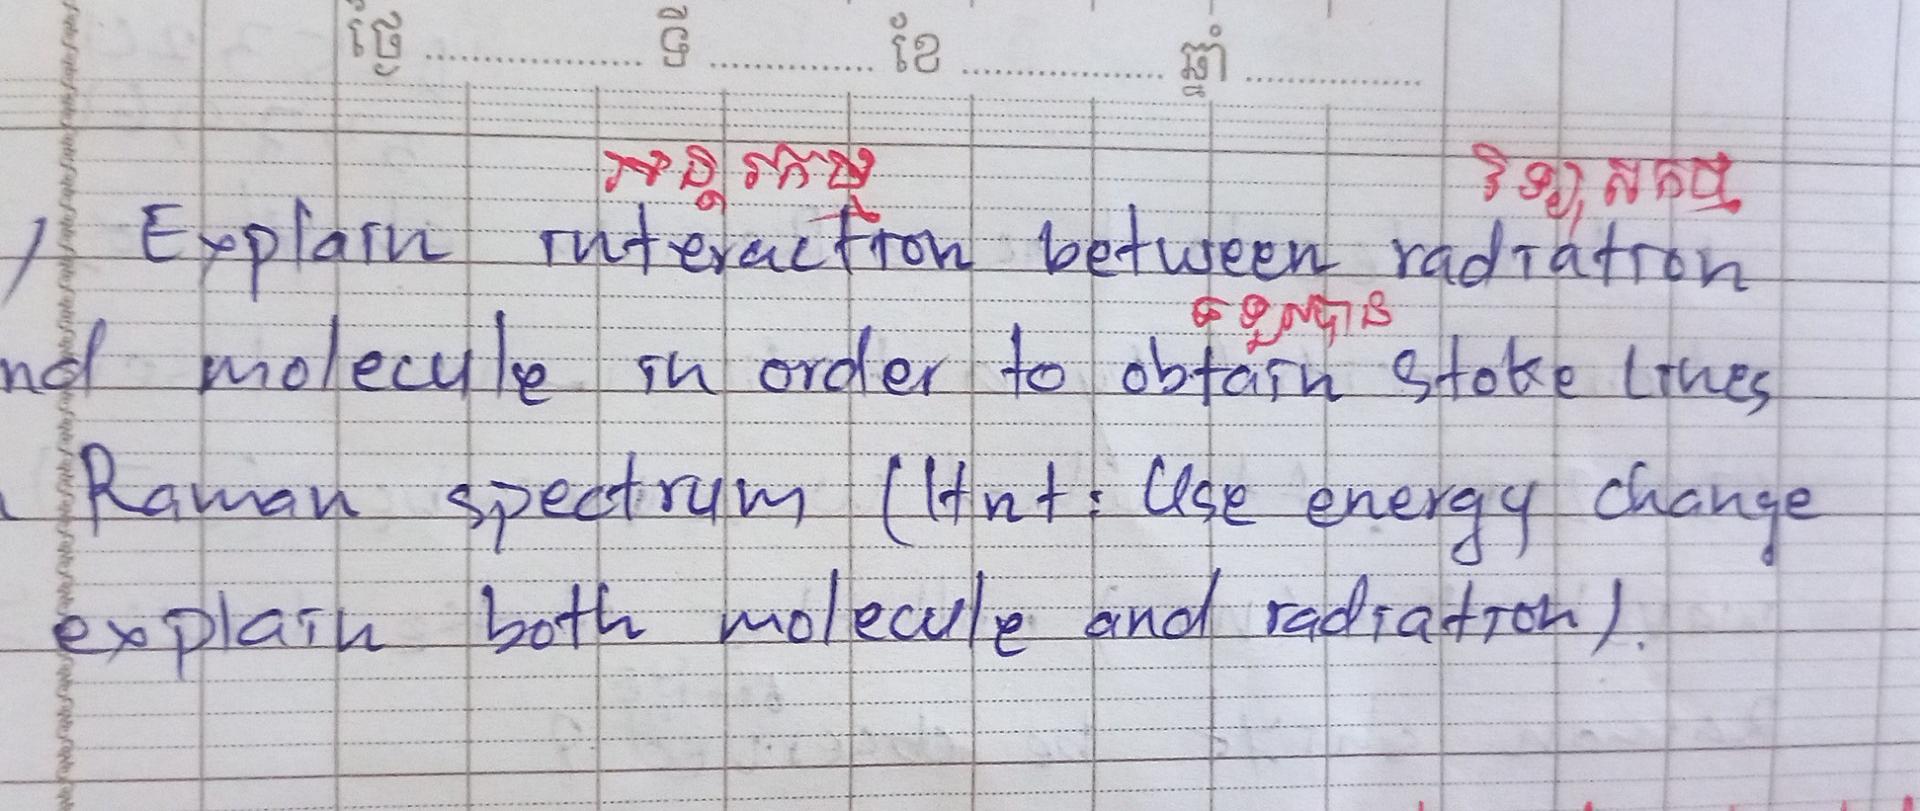 ថ្ងៃ ........................ ទី .................. ខែ ...................... ឆ្នាំ ...................
វិទ្យុសកម្ម
) Explain interaction between radiation
ទទួលបាន
nd molecule in order to obtain stoke lines
Raman spectrum (Hnt: Use energy change
explain both molecule and radiation).